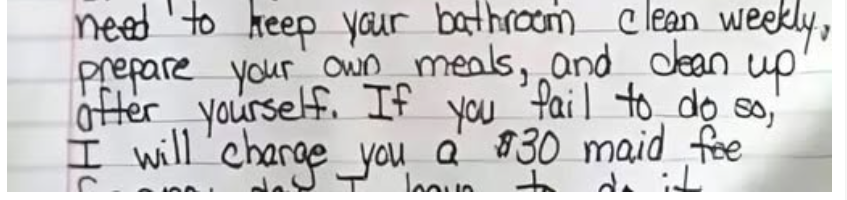 need to keep your bathroom clean weekly,
prepare your own meals, and clean up
after yourself. If you fail to do so,
I will charge you a $30 maid fee
day I have to do it